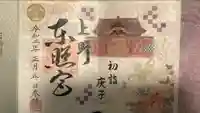 上野
東照宮
初詣
庚子
令和二年正月五日